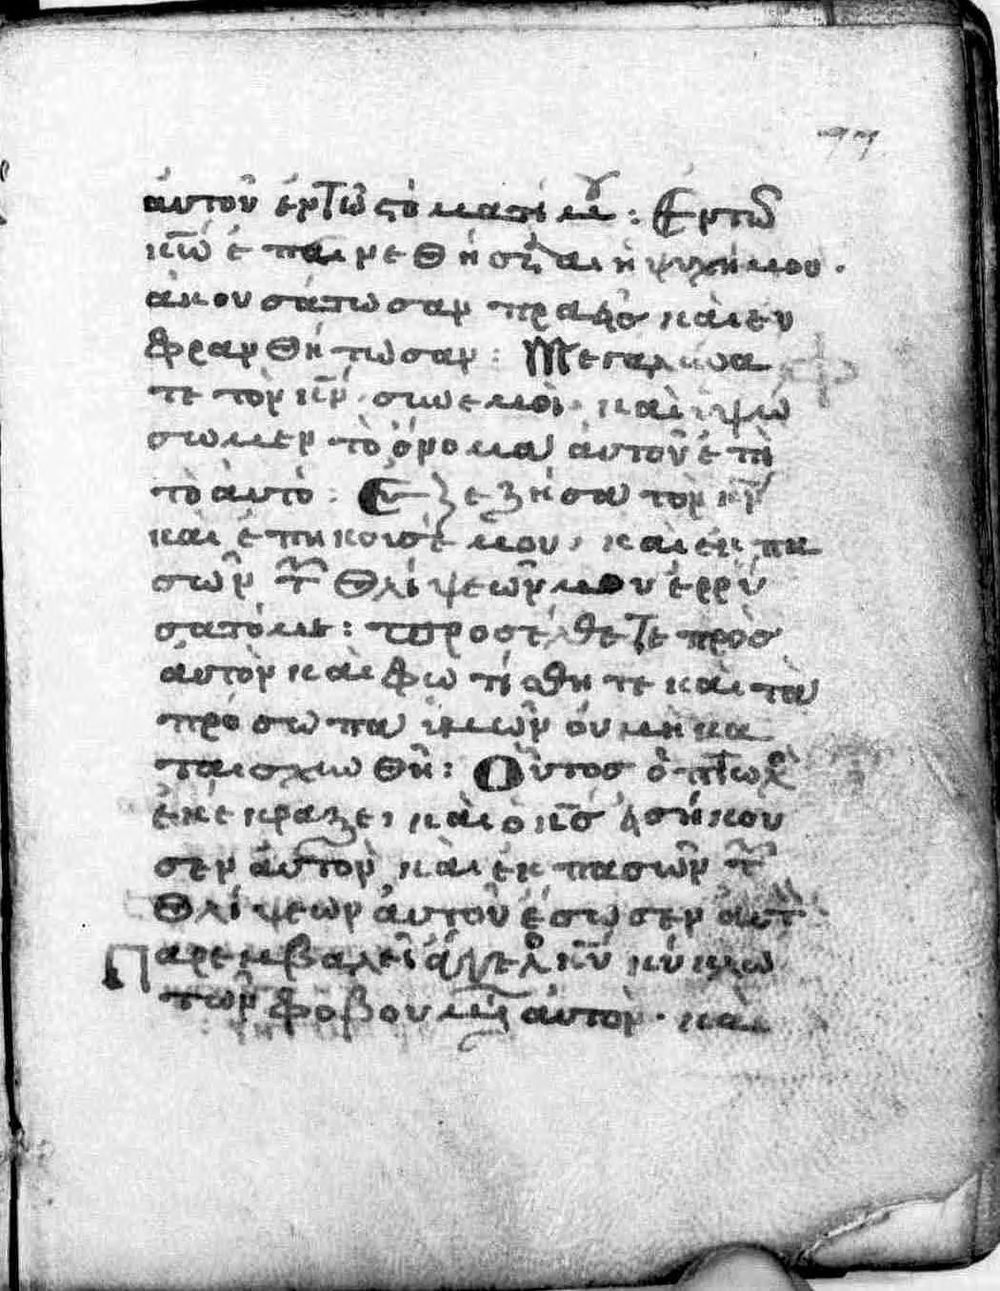 αυτοῦ ἐν τῶ στόματί μου : Ἐν τῶ
κ̅ω̅ ἐπαινεθήσεται ἡ ψυχή μου .
ἀκουσάτωσαν πραεῖς καὶ εὐ
φρανθήτωσαν : Μεγαλύνα
τε τὸν κ̅ν̅ σὺν ἐμοὶ · καὶ ὑψώ
σωμεν τὸ ὄνομα αὐτοῦ ἐπὴ
τὸ αὐτό : Ἐξεζήσα τὸν κ̅ν̅
καὶ ἐπήκουσέ μου , καὶ ἐκ πα
σῶν τῶν θλίψεων μου ἐρρύ
σατό με : προσέλθετε πρὸσ
αὐτὸν καὶ φωτίσθητε καὶ τὰ
πρόσωπα ὑμῶν οὐ μὴ κα
ταισχυνθῆ : Οὗτοσ ὁ πτωχὸς
ἐκέκραξε , καὶ ὁ κ̅σ̅ εἰσήκου
σεν αὐτοῦ , καὶ ἐκ πασῶν τῶν
θλίψεων αὐτοῦ ἔσωσεν αὐτ
Παρεμβαλεῖ ἄγγελος κ̅υ̅ κύκλω
τῶν φοβουμένων αὐτὸν . καὶ